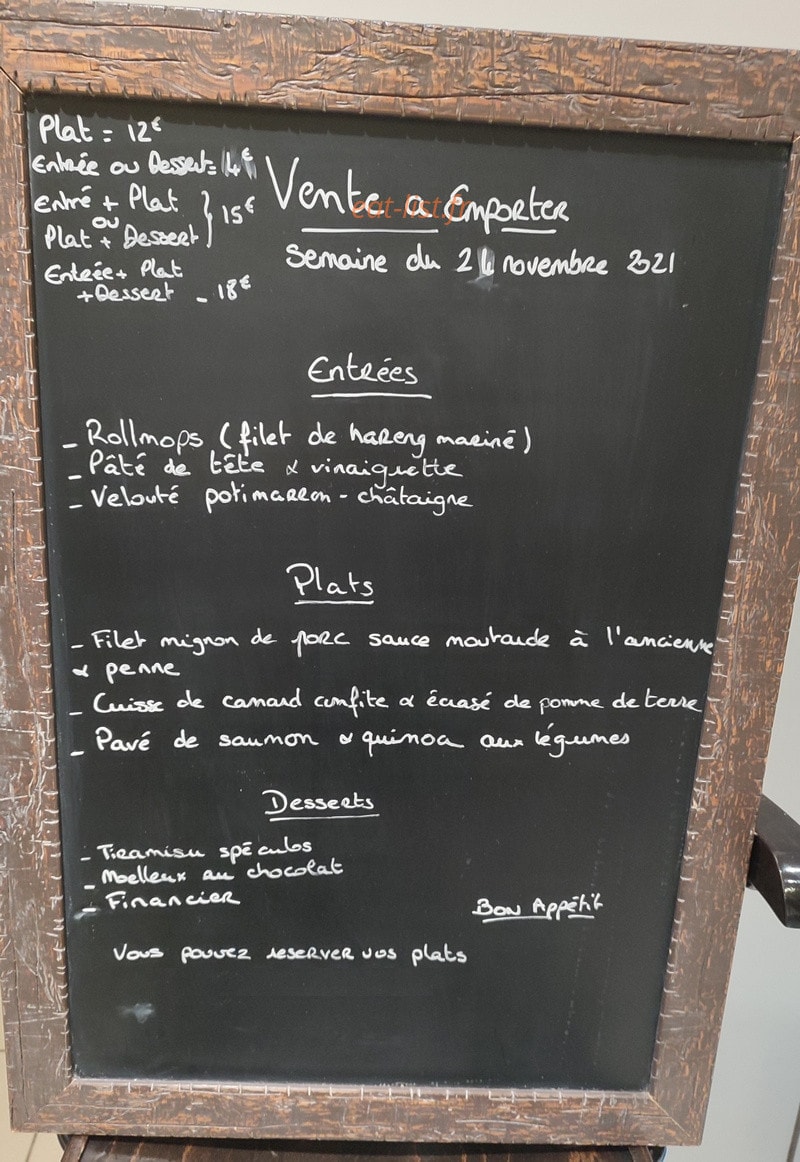 Plat = 12€
Entrée ou Dessert = 4€
Entré + Plat
ou
Plat + Dessert
15€
Entrée + Plat
+ Dessert - 18€
Vente a Emporter
eat-list.fr
Semaine du 24 novembre 2021
Entrées
- Rollmops (filet de hareng mariné)
- Pâté de tête & vinaiguette
- Velouté potimarron - châtaigne
Plats
- Filet mignon de porc sauce moutarde à l'ancienne
& penne
- Cuisse de canard confite & écrasé de pomme de terre
- Pavé de saumon & quinoa aux légumes
Desserts
- Tiramisu spéculos
- Moelleux au chocolat
- Financier
Bon Appétit
Vous pouvez reserver vos plats